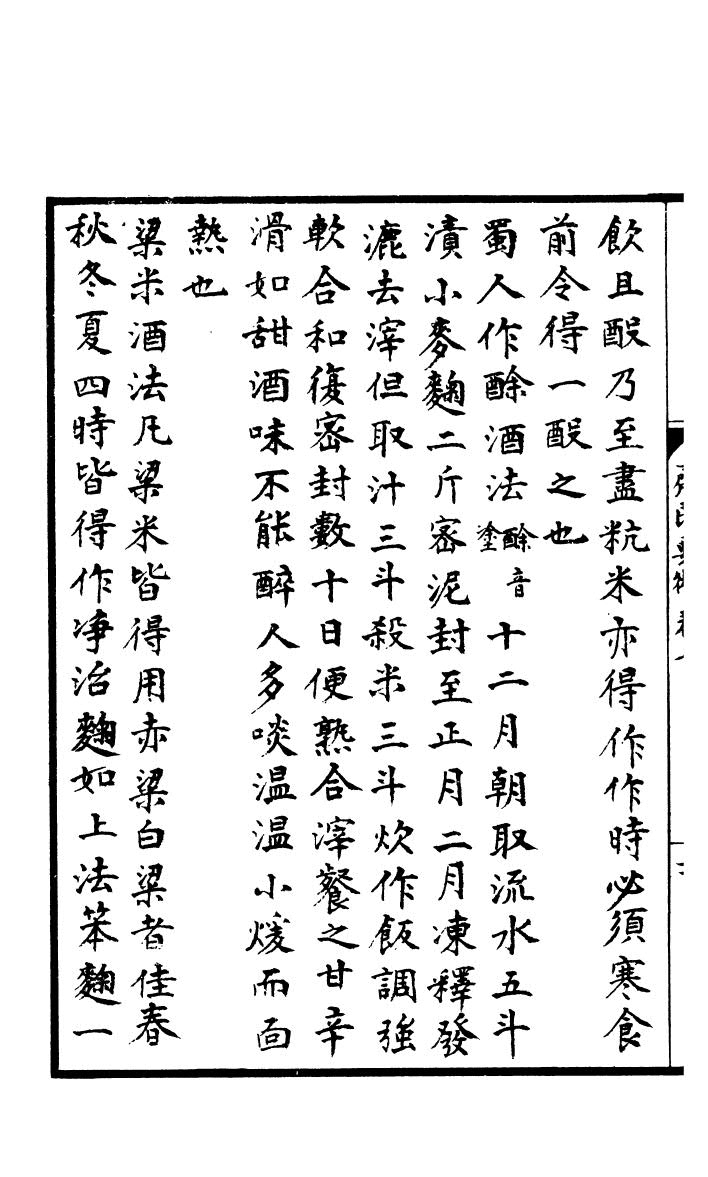 飲且酘乃至盡秔米亦得作作時必須寒食
前令得一酘之也
蜀人作酴酒法酴音塗十二月朝取流水五斗
漬小麥麴二斤宻泥封至正月二月凍釋發
漉去滓但取汁三斗殺米三斗炊作飯調強
軟合和復宻封數十日便熟合滓餐之甘辛
滑如甜酒味不能醉人多啖温温小煖而面
熱也
粱米酒法凡粱米皆得用赤粱白粱者佳春
秋冬夏四時皆得作凈治麴如上法笨麴一